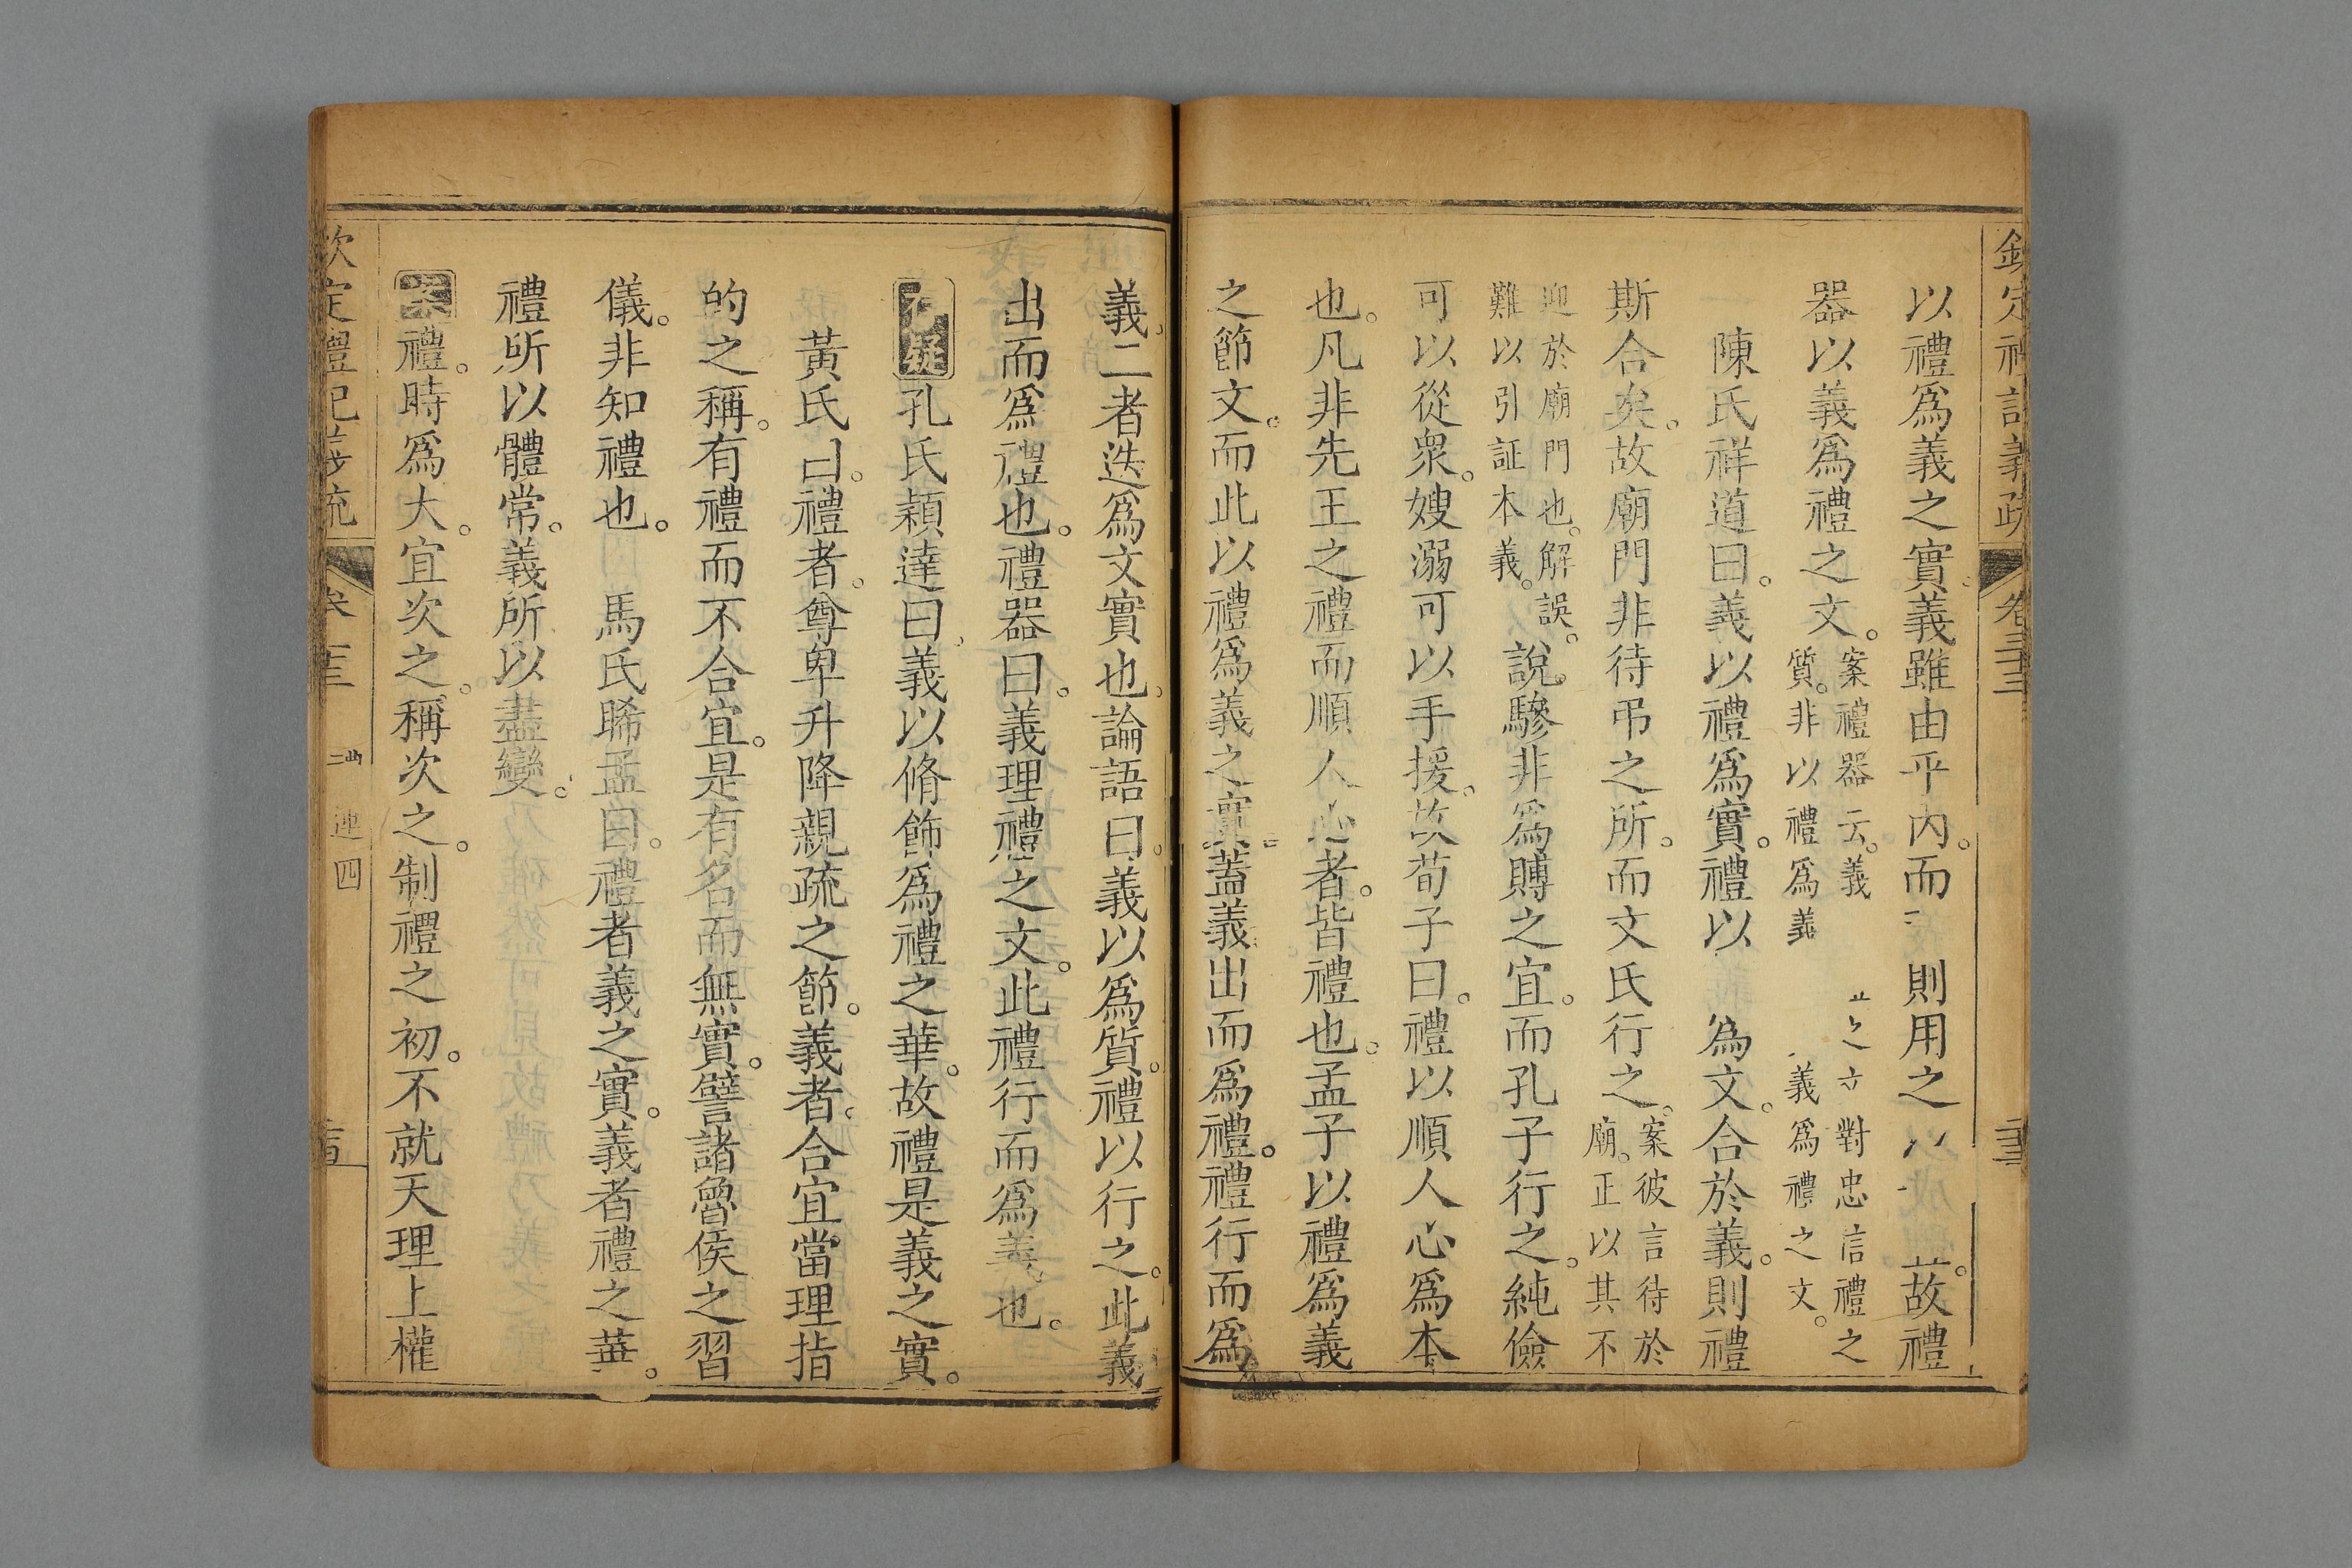 欽定禮記義疏 卷三十三
以禮爲義之實。義雖由乎內。而 則用之 故禮
器以義爲禮之文。案禮器云。義 對忠信禮之
質。非以禮爲義 義爲禮之文。
陳氏祥道曰。義以禮爲實。禮以 爲文。合於義。則禮
斯合矣。故廟門非待弔之所。而文氏行之。案彼言待於
廟。正以其不
迎於廟門也。解誤。
難以引証本義。說驂非爲賻之宜。而孔子行之。純儉
可以從衆。嫂溺可以手援。故荀子曰。禮以順人心爲本
也。凡非先王之禮而順人心者。皆禮也。孟子以禮爲義
之節文。而此以禮爲義之實。蓋義出而爲禮。禮行而爲
義。二者迭爲文實也。論語曰。義以爲質。禮以行之。此義
出而爲禮也。禮器曰。義理禮之文。此禮行而爲義也。
存疑孔氏穎達曰。義以脩飾爲禮之華。故禮是義之實。
黃氏曰。禮者。尊卑升降親疏之節。義者。合宜當理指
的之稱。有禮而不合宜。是有名而無實。譬諸魯侯之習
儀。非知禮也。 馬氏晞孟曰。禮者義之實。義者禮之華。
禮所以體常。義所以盡變。
案禮。時爲大。宜次之。稱次之。制禮之初。不就天理上權
欽定禮記義疏 卷三十三 曲二 連四